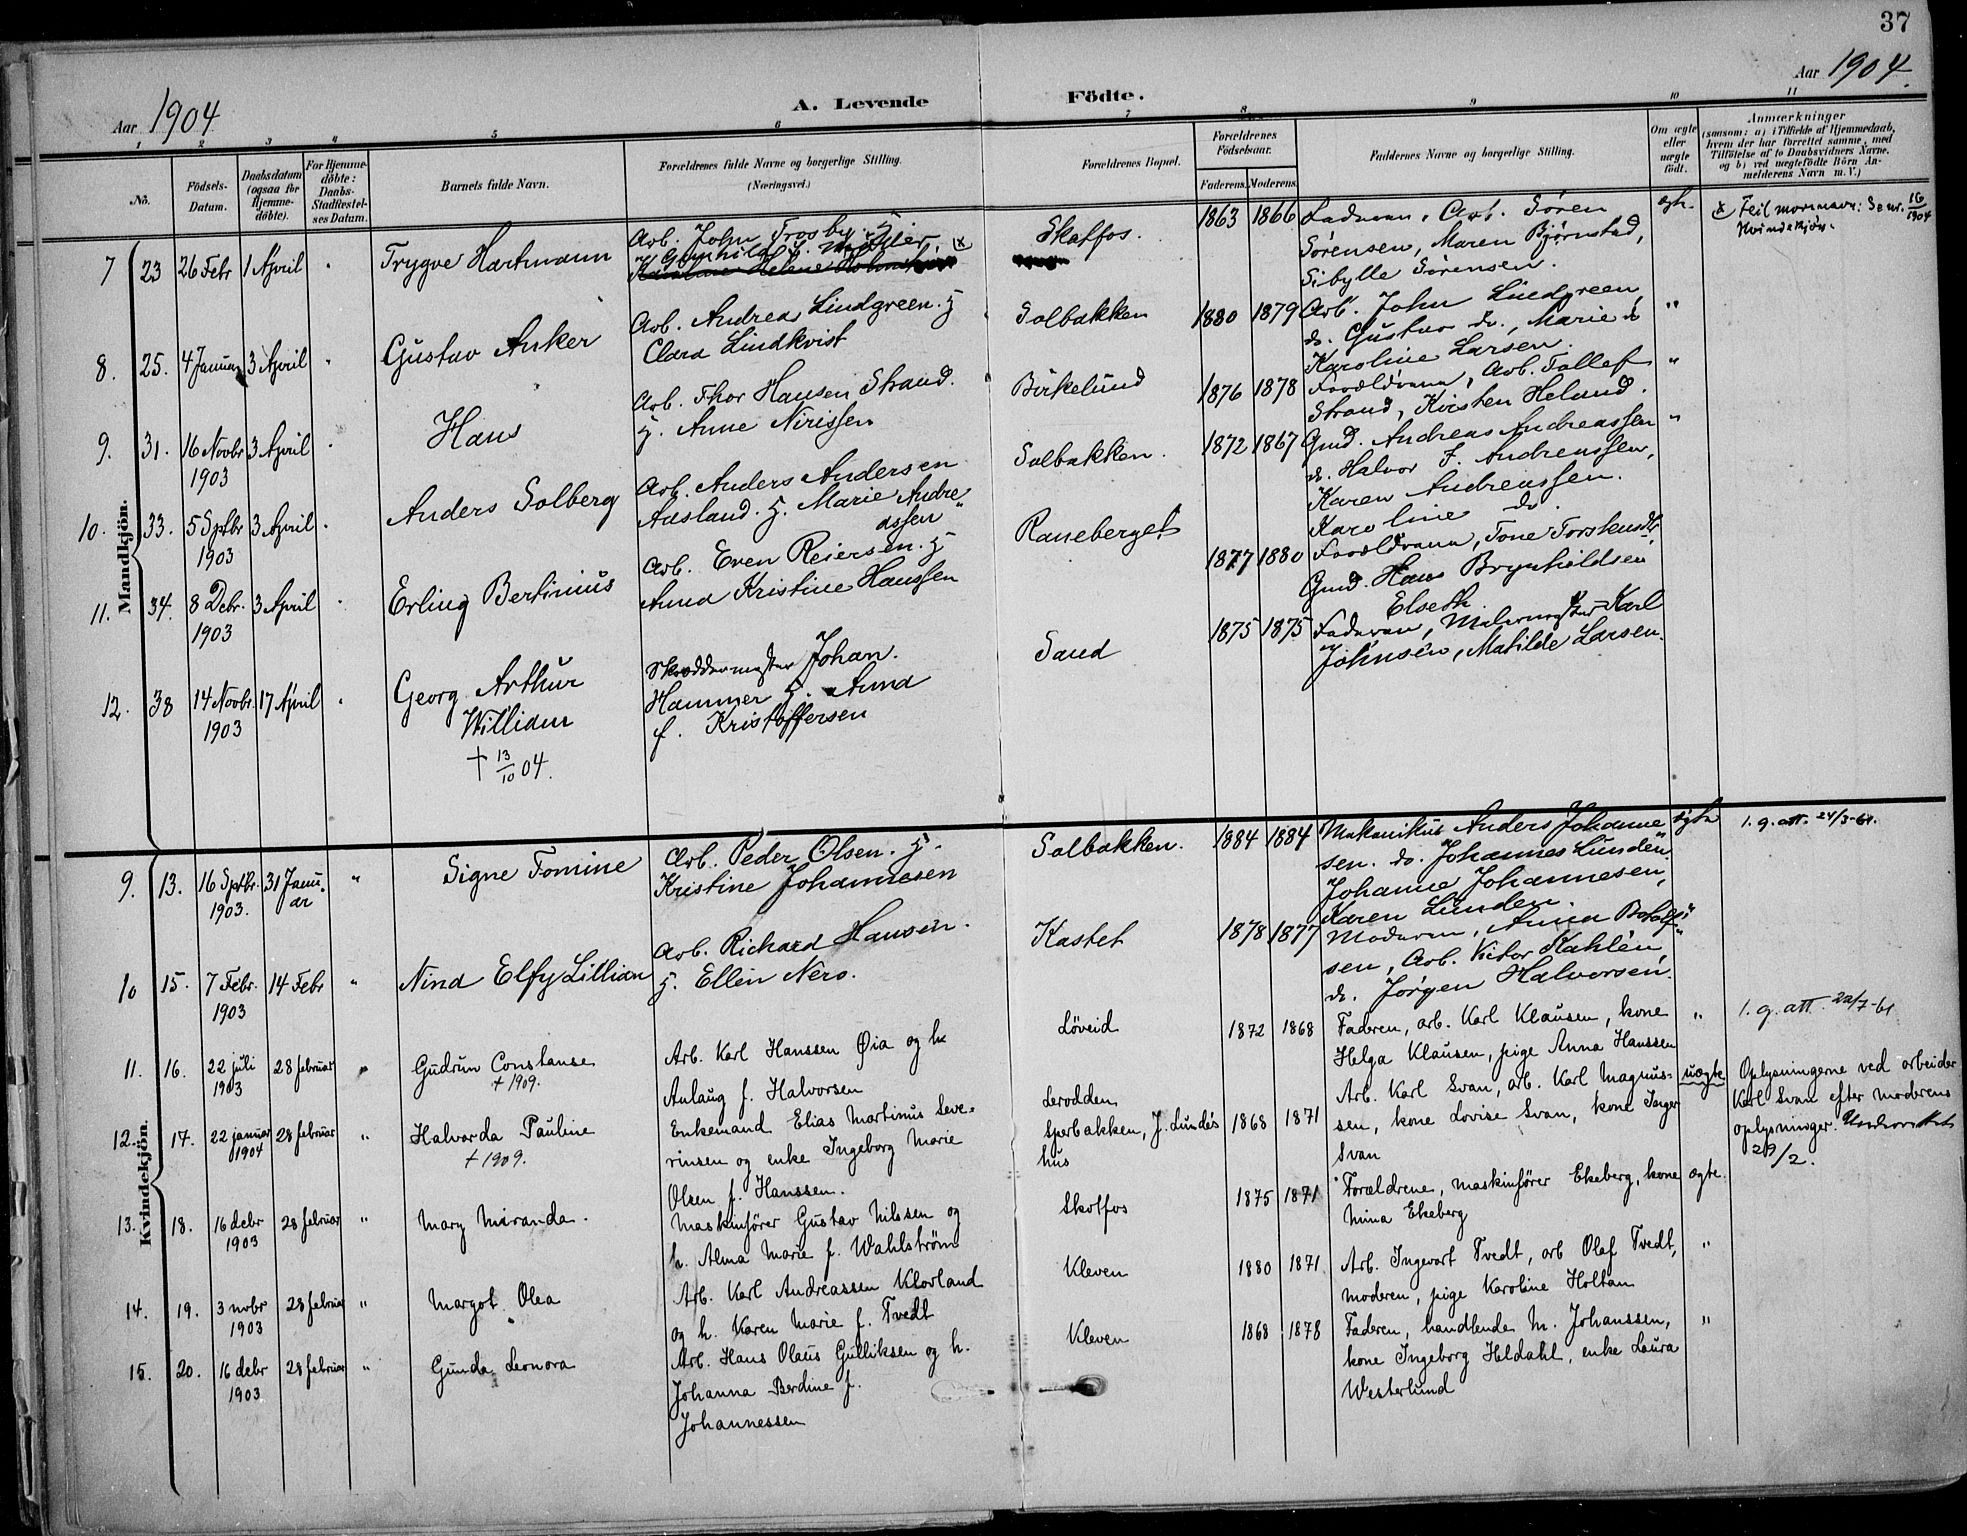 37
Aar 1904
A. Levende Födte.
Aar 1904.
1 2 3 4 5 6 7 8 9 10 11
No.
Födsels-Datum.
Daabsdatum (ogsaa for Hjemme-döbte).
For Hjemme-döbte: Daabs-Stadfæstel-ses Datum.
Barnets fulde Navn.
Forældrenes fulde Navne og borgerlige Stilling. (Næringsvei.)
Forældrenes Bopæl.
Forældrenes Födselsaar.
Faderens. Moderens.
Faddernes Navne og borgerlige Stilling.
Om ægte eller uægte födt.
Anmærkninger
(saasom: a) i Tilfælde af Hjemmedaab, hvem der har forrettet samme, med Tilföielse af to Daabsvidners Navne, og b) ved uegtefödte Börn An-melderens Navn m. V.)
Mandkjön.
7 23 26 Febr 1 April Trygve Hartmann
Arb. John Frosby. H
Gunhild J. Møller. x
Skotfos. 1863 1866
Faderen, Arb. Sören
Sörensen, Maren Bjørnstad,
Sibylle Sörensen.
egte.
x Feil morsnavn: Se nr. 16/1904
Kvindekjøn.
8. 25. 4 Januar 3 April Gustav Anker
Arb. Andreas Lindgreen. H
Clara Lindkvist
Solbakken 1880 1879
Arb. John Lindgreen
do. Gustav do., Marie do
Karoline Larsen.
"
9. 31. 16 Novbr 1903 3 April Hans
Arb. Thor Hansen Strand.
H. Anne Nirissen
Birkelund 1876 1878
Forældrene, Arb. Tollef
Strand, Kirsten Heland.
"
10. 33. 5 Sptbr 1903 3 April Anders Solberg
Arb. Anders Andersen
Aasland. H. Marie Andre
assen
Solbakken. 1872 1867
Gmd. Andreas Andreassen
do. Halvor J. Andreassen,
Karen Andreassen.
Karoline do.
"
11. 34. 8 Debr. 1903 3 April Erling Bertinius
Arb. Even Reiersen. H
Anna Kristine Hanssen
Raneberget 1877 1880
Forældrene, Tone Torstensdtr,
Gmd. Hans Brynhildsen
Elseth.
12. 38 14 Novbr. 1903 17 April Georg Arthur
William
† 13/10 04.
Skræddermester Johan.
Hammer H. Anna
f. Kristoffersen
Sand 1875 1875
Faderen, Malermester Karl
Johnsen, Matilde Larsen.
Kvindekjön.
9. 13. 16 Sptbr. 1903. 31 Janu-ar " Signe Tomine
Arb. Peder Olsen. H.
Kristine Johannesen
Solbakken. 1884 1884
Mekanikus Anders Johanne
sen. do. Johannes Lunden.
Johanne Johannesen,
Karen Lunden.
ægte
1. g. att. 24/3-61.
10 15. 7 Febr. 1903 14 Febr " Nina Elfy Lillian
Arb. Richard Hansen.
H. Ellen Nero.
Kastet 1878 1877
Moderen, Anna Botolf-
sen, Arb. Victor Kahlen
do. Jörgen Halvorsen.
"
11. 16. 22 juli 1903 28 februar " Gudrun Constanse
† 1909.
Arb. Karl Hanssen Øia og h.
Anlaug f. Halvorsen
Löveid 1872 1868
Faderen, arb. Karl Klausen, kone
Helga Klausen, pige Anna Hanssen
"
1. g. att. 22/7-61
12. 17. 22 januar 1904 28 februar " Halvarda Pauline
† 1909.
Enkemand Elias Martinus Seve-
rinsen og enke Ingeborg Marie
Olsen f. Hanssen.
Lerodden
Sperbakken, J. Lunde's
hus
1868 1871
Arb. Karl Svan, arb. Karl Magnus-
sen, kone Lovise Svan, kone Inger
Svan
uægte
Oplysningerne ved arbeider
Karl Svan efter moderens
oplysninger.
29/2.
13. 18. 16 debr 1903 28 februar " Mary Miranda.
Maskinfører Gustav Nilssen og
h. Alma Marie f. Wahlström
Skotfos 1875 1871
Forældrene, maskinfører Ekeberg, kone
Mina Ekeberg
ægte.
14. 19. 3 novbr 1903 28 februar " Margot Olea
Arb. Karl Andreassen Klovland
og h. Karen Marie f. Tvedt
Kleven 1880 1871
Arb. Ingevart Tvedt, arb Olaf Tvedt,
moderen, pige Karoline Holtan
"
15. 20. 16 debr 1903 28 februar " Gunda Leonora
Arb. Hans Olaus Gulliksen og h.
Johanna Berdine f.
Johannessen
Kleven 1868 1878
Faderen, handlende M. Johanssen,
kone Ingeborg Heldahl, enke Laura
Westerlund
"